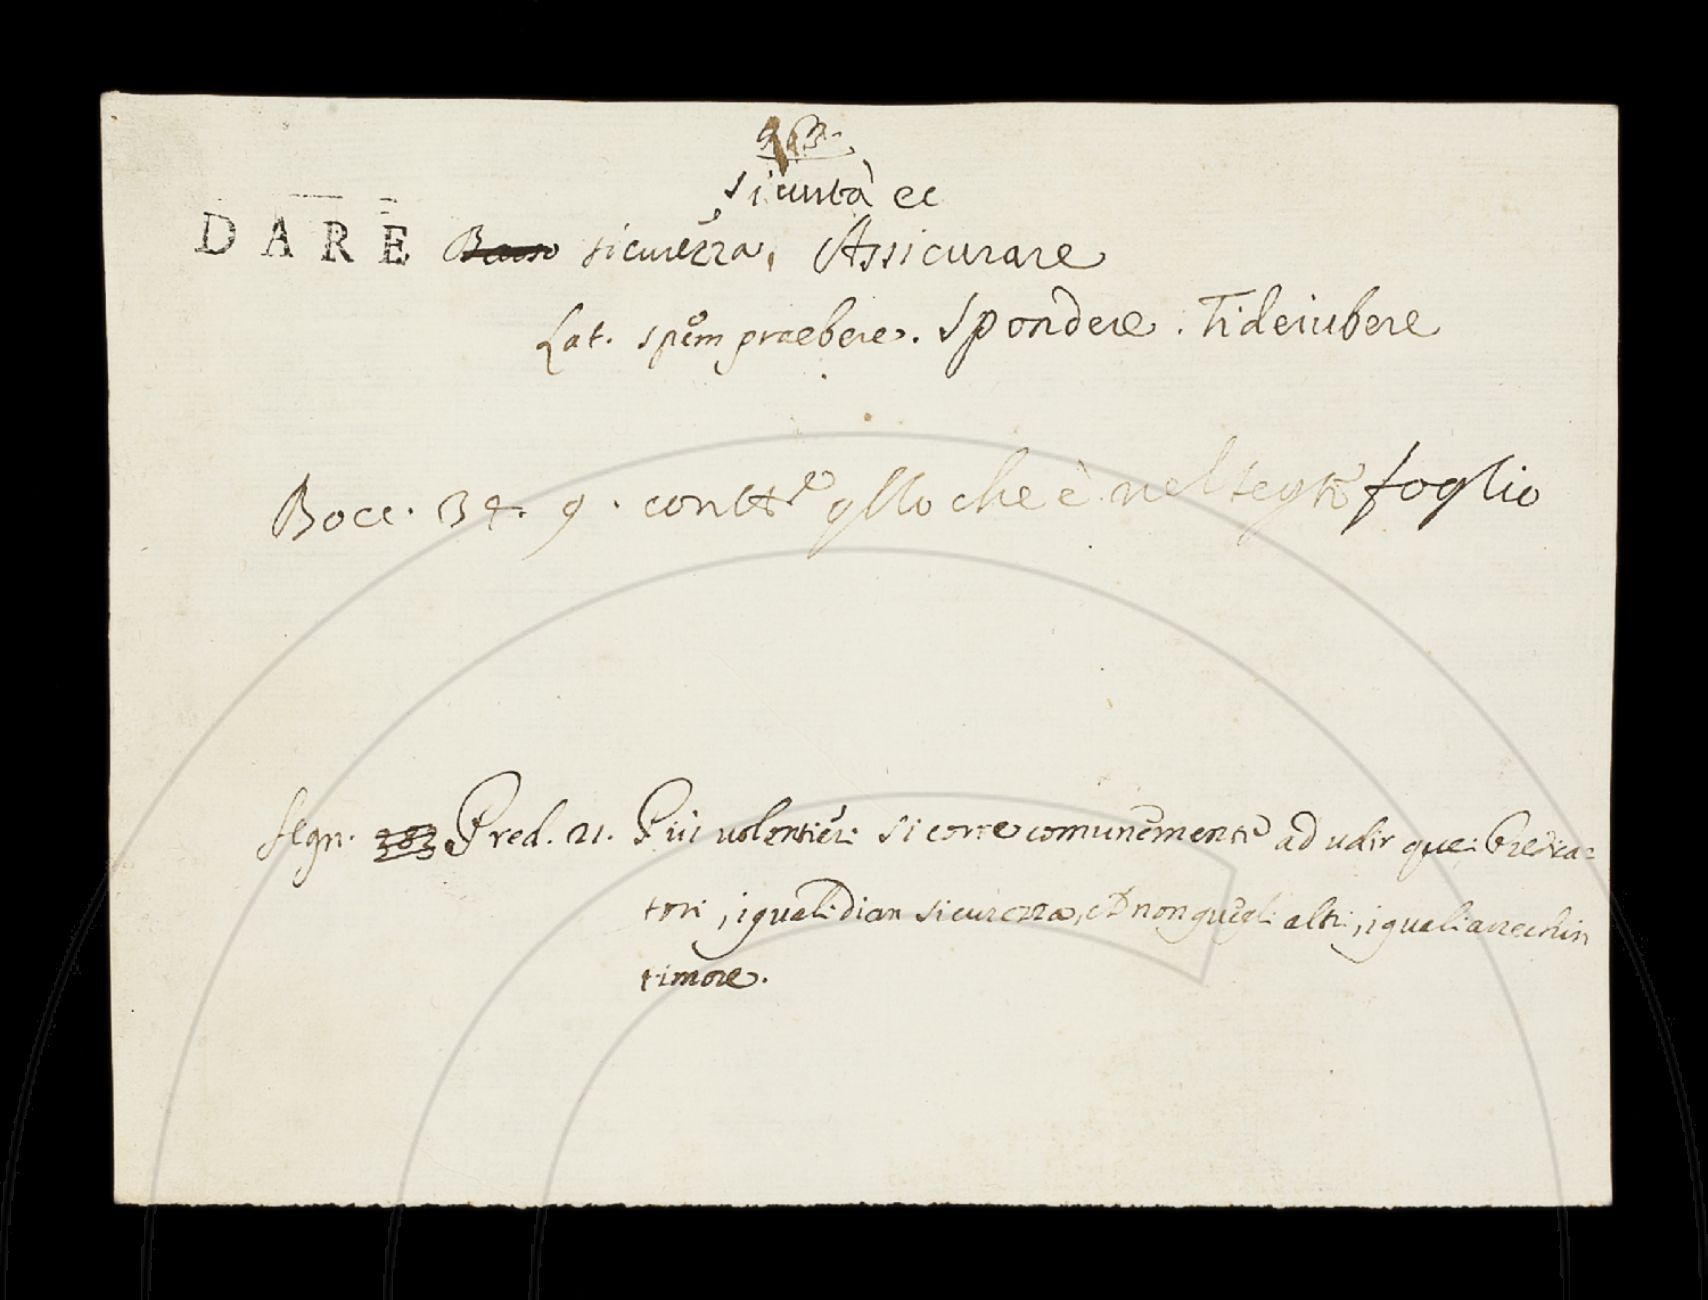 sicurtà ec
DARE sicurezza, Assicurare
Lat. spem praebere. Spondere. Fideiubere
Bocc. 34. 9. con tt.e qllo che è nel segte foglio
Segn. Pred. 21. Più volontieri si corre comunemente ad udir quei Predica=
tori, i quali dian sicurezza, e non quegli altri, i quali arrechin
timore.